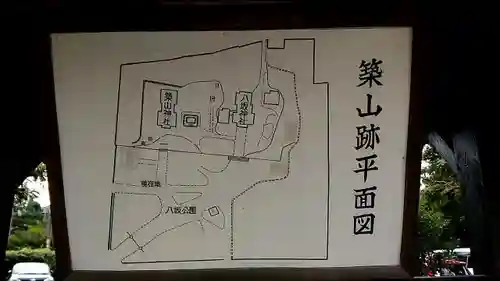 築山跡平面図
築山神社
八坂神社
八坂公園